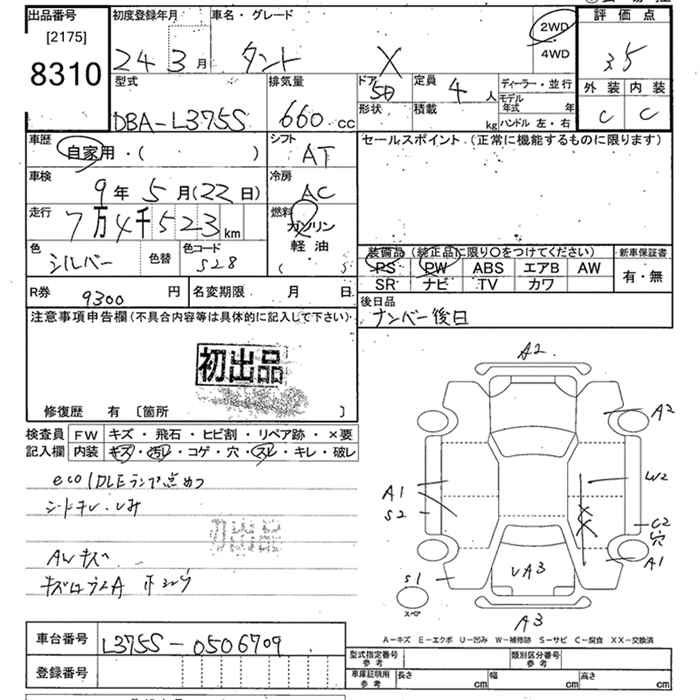 出品番号 初度登録年月 車名・グレード 2WD 評価点
[2175] 24 3月 タント X 4WD 3.5
8310 型式 排気量 ドア 定員 ディーラー・並行 外装 内装
DBA-L375S 660 cc 5D 4人 モデル年式 年 C C
形状 積載 kg ハンドル 左・右
車歴 自家用・( ) シフト AT セールスポイント.(正常に機能するものに限ります)
車検 9年 5月(22日) 冷房 AC
走行 7万4千523km 燃料 ガソリン
軽油
色 シルバー 色替 色コード S28 ( )
装備品(純正品に限り○をつけてください) 新車保証書
PS PW ABS エアB AW 有・無
SR ナビ TV カワ
R券 9300円 名変期限 月 日 後日品
ナンバー後日
注意事項申告欄(不具合内容等は具体的に記入して下さい)
初出品
修復歴 有 〔箇所 〕
検査員 FW キズ・飛石・ヒビ割・リペア跡・×要
記入欄 内装 キズ・汚レ・コゲ・穴・スレ・キレ・破レ
eco IDLEランプ点めつ
AWキズ
A2
A2
A1
S2
W2
C2
穴
A1
S1
スペア
VA3
A3
A-キズ E-エクボ U-凹み W-補修跡 S-サビ C-腐食 XX-交換済
車台番号 L375S-0506709
登録番号
型式指定番号 参考 類別区分番号 参考
車庫証明用 参考 長さ cm 幅 cm 高さ cm